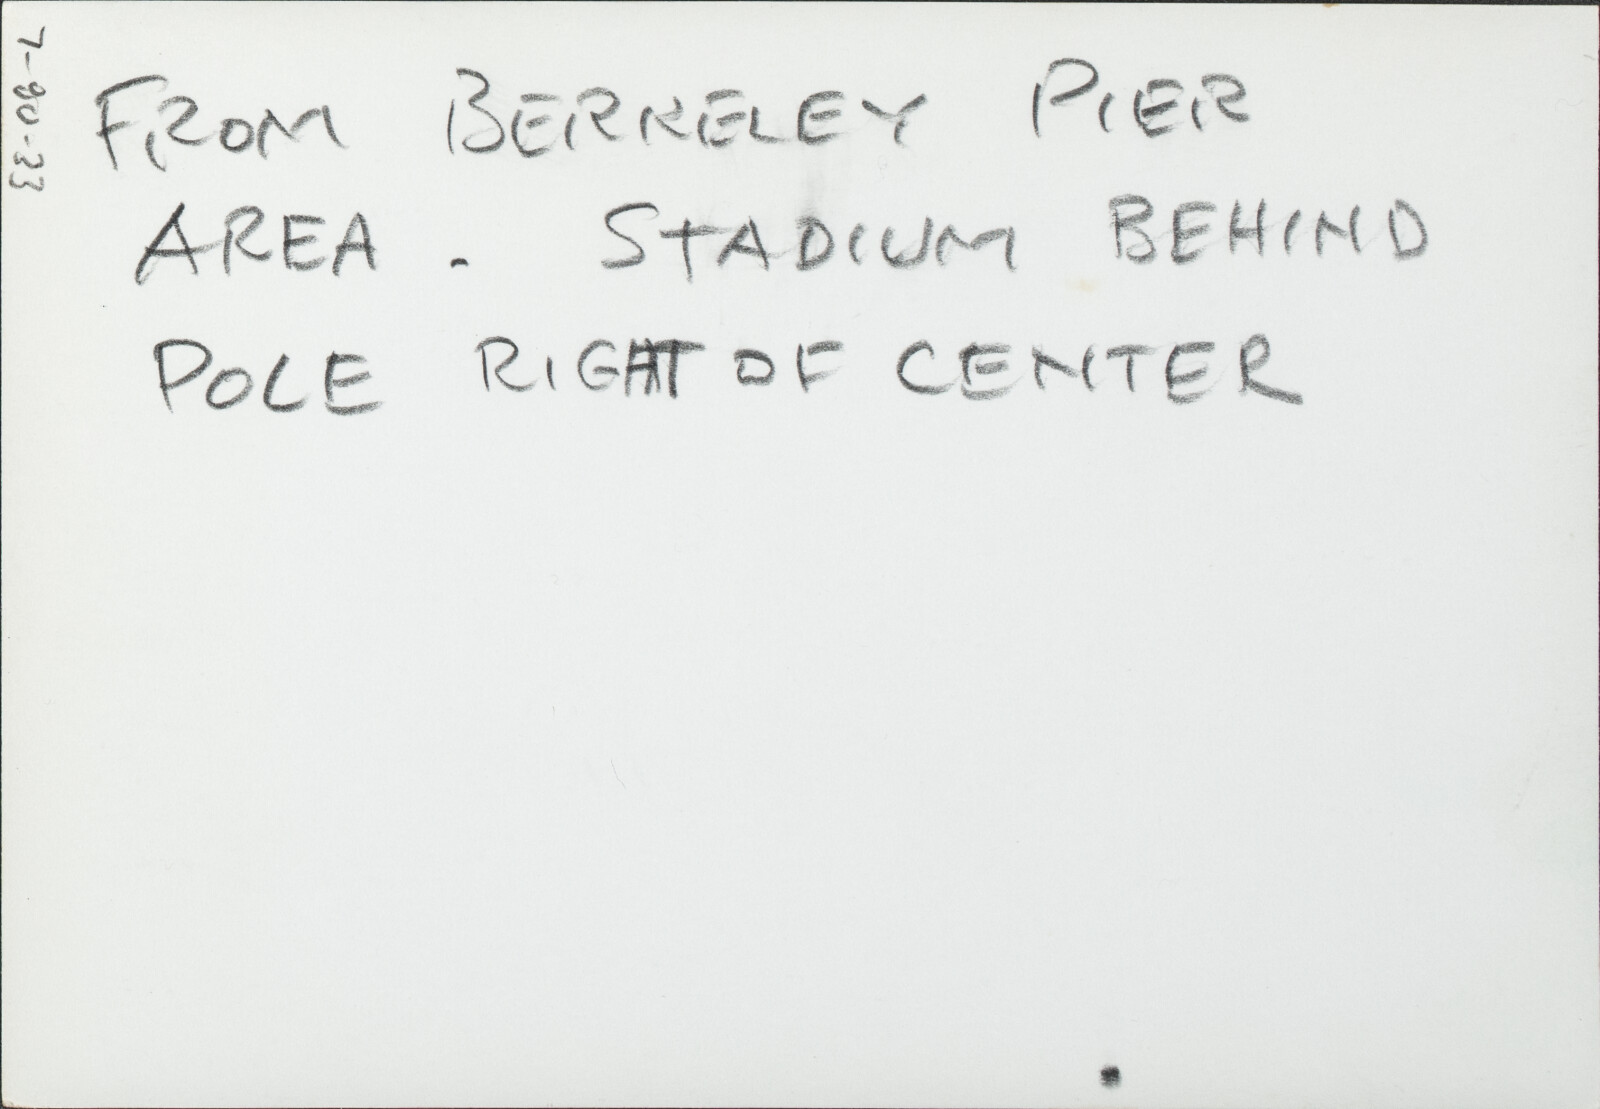 7-90-33
FROM BERKELEY PIER
AREA. STADIUM BEHIND
POLE RIGHT OF CENTER